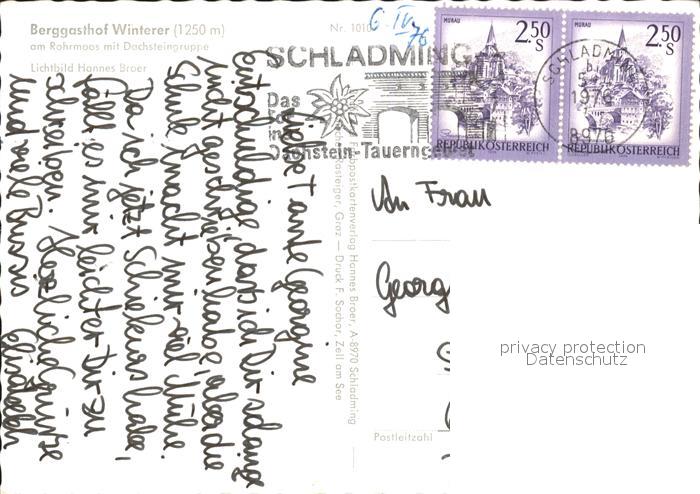 Berggasthof Winterer (1250 m)
am Rohrmoos mit Dachsteingruppe
Lichtbild Hannes Broer
Nr. 1010
6. IV. 76
SCHLADMING
Das
in
Dachstein-Tauerngebiet
MURAU
2.50
S
REPUBLIK ÖSTERREICH
MURAU
2.50
S
REPUBLIK ÖSTERREICH
SCHLADMING
1976
8970
Liebe Tante Georgine
entschuldige daß ich Dir solange
nicht geschrieben habe, aber die
Schule macht mir viel Mühe.
Da ich jetzt Schikurs habe,
fällt es mir leichter Dir zu
schreiben. Herzliche Grüße
und viele Bussis Elisabeth
Farbpostkartenverlag Hannes Broer, A-8970 Schladming
Graz — Druck F. Sochor, Zell am See
An Frau
Georg
Postleitzahl
privacy protection
Datenschutz